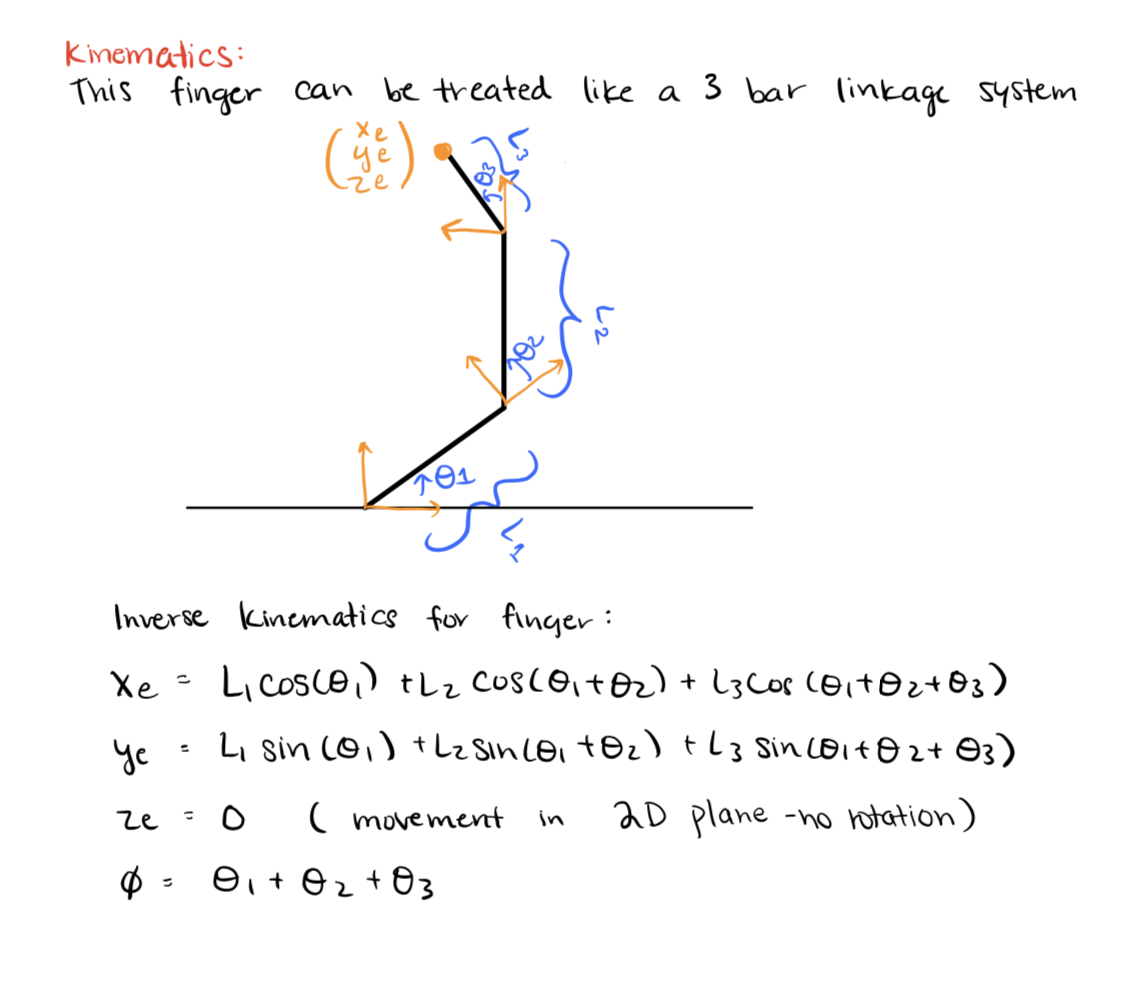 Kinematics:
This finger can be treated like a 3 bar linkage system
xe
ye
ze
θ3
L3
θ2
L2
θ1
L1
Inverse kinematics for finger:
xe = L1cos(θ1) + L2 cos(θ1+θ2) + L3cos (θ1+θ2+θ3)
ye = L1 sin (θ1) + L2sin(θ1+θ2) + L3 sin(θ1+θ2+θ3)
ze = 0 ( movement in 2D plane -no rotation)
ϕ = θ1 + θ2 + θ3